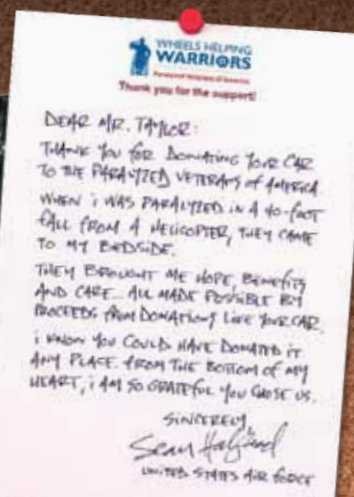 WHEELS HELPING
WARRIORS
Paralyzed Veterans of America
Thank you for the support!
DEAR MR. TAYLOR:
THANK YOU FOR DONATING YOUR CAR
TO THE PARALYZED VETERANS OF AMERICA
WHEN i WAS PARALYZED IN A 40-FOOT
FALL FROM A HELICOPTER, THEY CAME
TO MY BEDSIDE.
THEY BROUGHT ME HOPE, BENEFITS
AND CARE... ALL MADE POSSIBLE BY
PROCEEDS FROM DONATIONS LIKE YOUR CAR.
i KNOW YOU COULD HAVE DONATED IT
ANY PLACE. FROM THE BOTTOM OF MY
HEART, i AM SO GRATEFUL YOU CHOSE US.
SINCERELY
Sean
UNITED STATES AIR FORCE